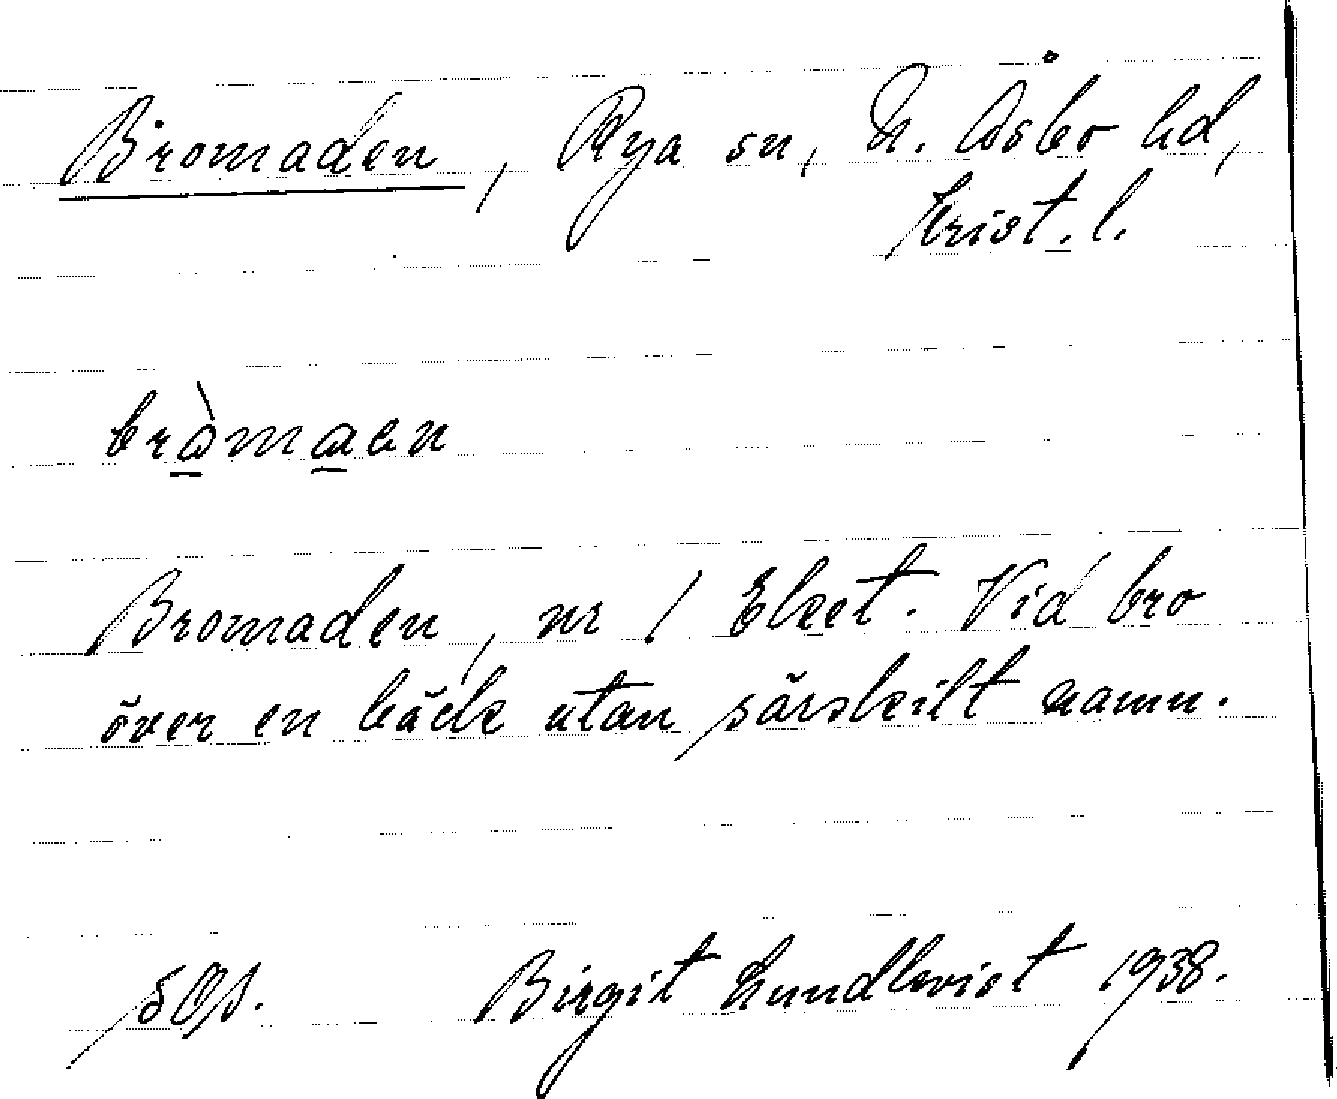 Bromaden, Rya sn, N. Åsbo hd,
Krist. l.
bròmaen
Bromaden, nr 1 Ekeet. Vid bro
över en bäck utan särskilt namn.
Birgit Lundkvist 1938.